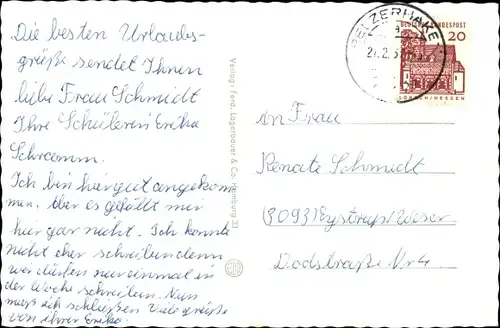 Die besten Urlaubs-
grüße sendet Ihnen
liebe Frau Schmidt
Ihre Schülerin Erika
Schramm.
Ich bin hier gut angekom
men. Aber es gefällt mir
hier gar nicht. Ich konnte
nicht eher schreiben denn
wir dürfen nur einmal in
der Woche schreiben. Nun
muß ich schließen Viele grüße
von ihrer Erika
Verlag: Ferd. Lagerbauer & Co. Hamburg 33
PELZERHAKEN
DEUTSCHE BUNDESPOST
20
LORSCH/HESSEN
An Frau
Renate Schmidt
(309) Eystrup/Weser